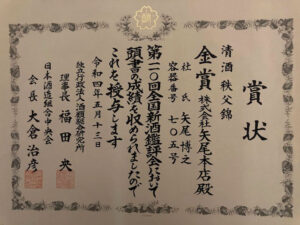 賞状
清酒 秩父錦
金賞 株式会社矢尾本店殿
杜氏 矢尾博之
容器番号 七〇五号
第一一〇回全国新酒鑑評会において
頭書の成績を収められましたので
これを授与します
令和四年五月十三日
独立行政法人酒類総合研究所
理事長 福田央
日本酒造組合中央会
会長 大倉治彦